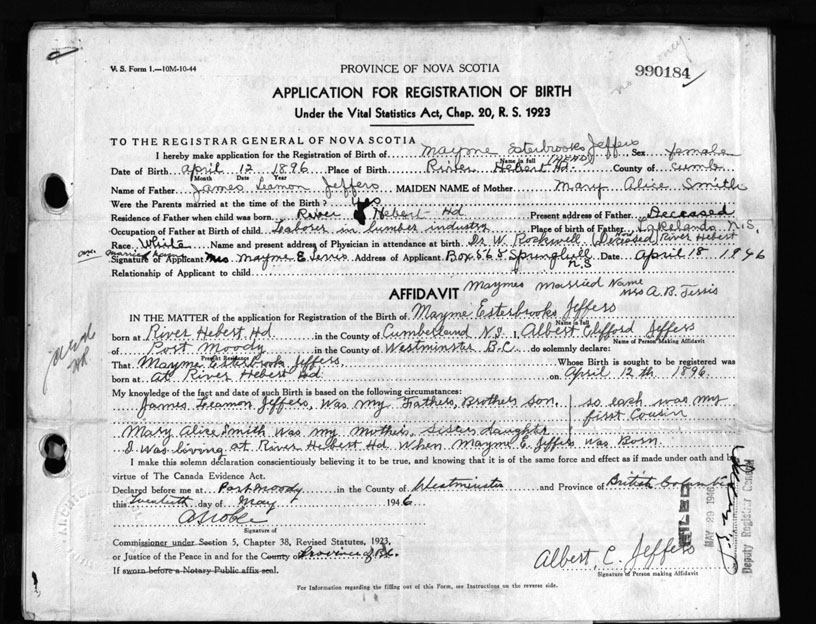 V. S. Form 1.—10M-10-44
PROVINCE OF NOVA SCOTIA
990184
APPLICATION FOR REGISTRATION OF BIRTH
Under the Vital Statistics Act, Chap. 20, R. S. 1923
TO THE REGISTRAR GENERAL OF NOVA SCOTIA
I hereby make application for the Registration of Birth of Mayme Esterbrooks Jeffers Sex female
Name in full (HEAD)
Date of Birth April 12 1896 Place of Birth River Hebert Hd. County of Cumb
Month Day Year
Name of Father James Leamon Jeffers MAIDEN NAME of Mother Mary Alice Smith
Were the Parents married at the time of the Birth? Yes
Residence of Father when child was born River Hebert Hd Present address of Father Deceased
Occupation of Father at Birth of child Laborer in lumber industry Place of birth of Father Lakelands N.S.
Race White Name and present address of Physician in attendance at birth Dr W. Rockwell (Deceased) Now River Hebert
over Married Name
Signature of Applicant Mrs Mayme E Address of Applicant Box 568 Springhill N.S Date April 18 1946
Relationship of Applicant to child
Maymes Married Name
Mrs A.B.
AFFIDAVIT
IN THE MATTER of the application for Registration of the Birth of Mayme Esterbrooks Jeffers
Name in full
born at River Hebert Hd in the County of Cumberland N.S. I, Albert Clifford Jeffers
Name of Person Making Affidavit
of Port Moody in the County of Westminster B.C do solemnly declare:
Present Residence
That Mayme Esterbrooks Jeffers Whose Birth is sought to be registered was
born at at River Hebert Hd on April 12th 1896.
My knowledge of the fact and date of such Birth is based on the following circumstances:
James Leamon Jeffers, was my Fathers, Brothers son. so each was my
first Cousin
Mary Alice Smith was my mothers, Sister daughter
I was living at River Hebert Hd when Mayme E. Jeffers was Born.
I make this solemn declaration conscientiously believing it to be true, and knowing that it is of the same force and effect as if made under oath and by
virtue of The Canada Evidence Act.
Declared before me at Port Moody in the County of Westminster and Province of British Columbia
this Twentieth day of May 1946
Signature of
Commissioner under Section 5, Chapter 38, Revised Statutes, 1923,
or Justice of the Peace in and for the County Province of B.C.
If sworn before a Notary Public affix seal.
Albert, C. Jeffers
Signature of Person making Affidavit
MAY 29 1946
Deputy Registrar General
For Information regarding the filling out of this Form, see Instructions on the reverse side.